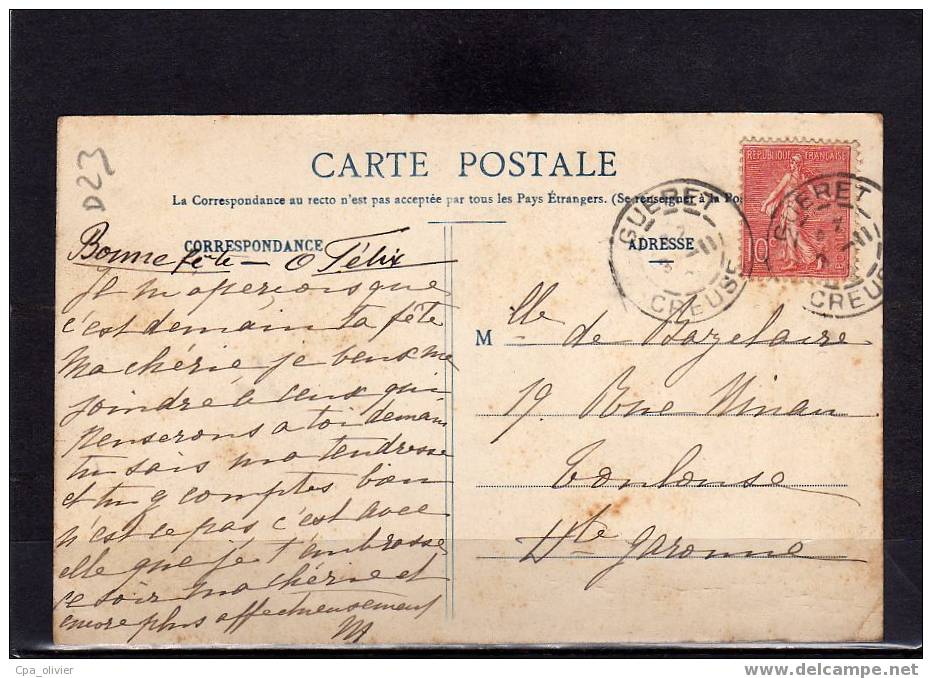 D23
CARTE POSTALE
La Correspondance au recto n'est pas acceptée par tous les Pays Étrangers. (Se renseigner à la Pos
CORRESPONDANCE
ADRESSE
RÉPUBLIQUE FRANÇAISE
10c
GUERET
CREUSE
GUERET
CREUS
Bonne fête - Félix
Je m'aperçois que
c'est demain ta fête
ma chérie je veux me
joindre à ceux qui
penserons a toi demain
tu sais ma tendresse
et tu y comptes bien
n'est ce pas c'est avec
elle que je t'embrasse
ce soir ma chérie et
encore plus affectueusement
M
Mlle de Hazelaire
19. Rue Ninau
Toulouse
Hte Garonne
Cpa_olivier
www.delcampe.net